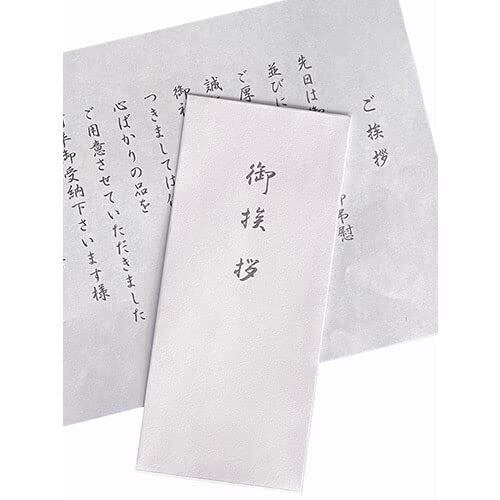 御挨拶
ご挨拶
先日は御
御弔慰
並びに
ご厚
誠
御礼
つきましては
心ばかりの品を
ご用意させていただきました
御受納下さいます様